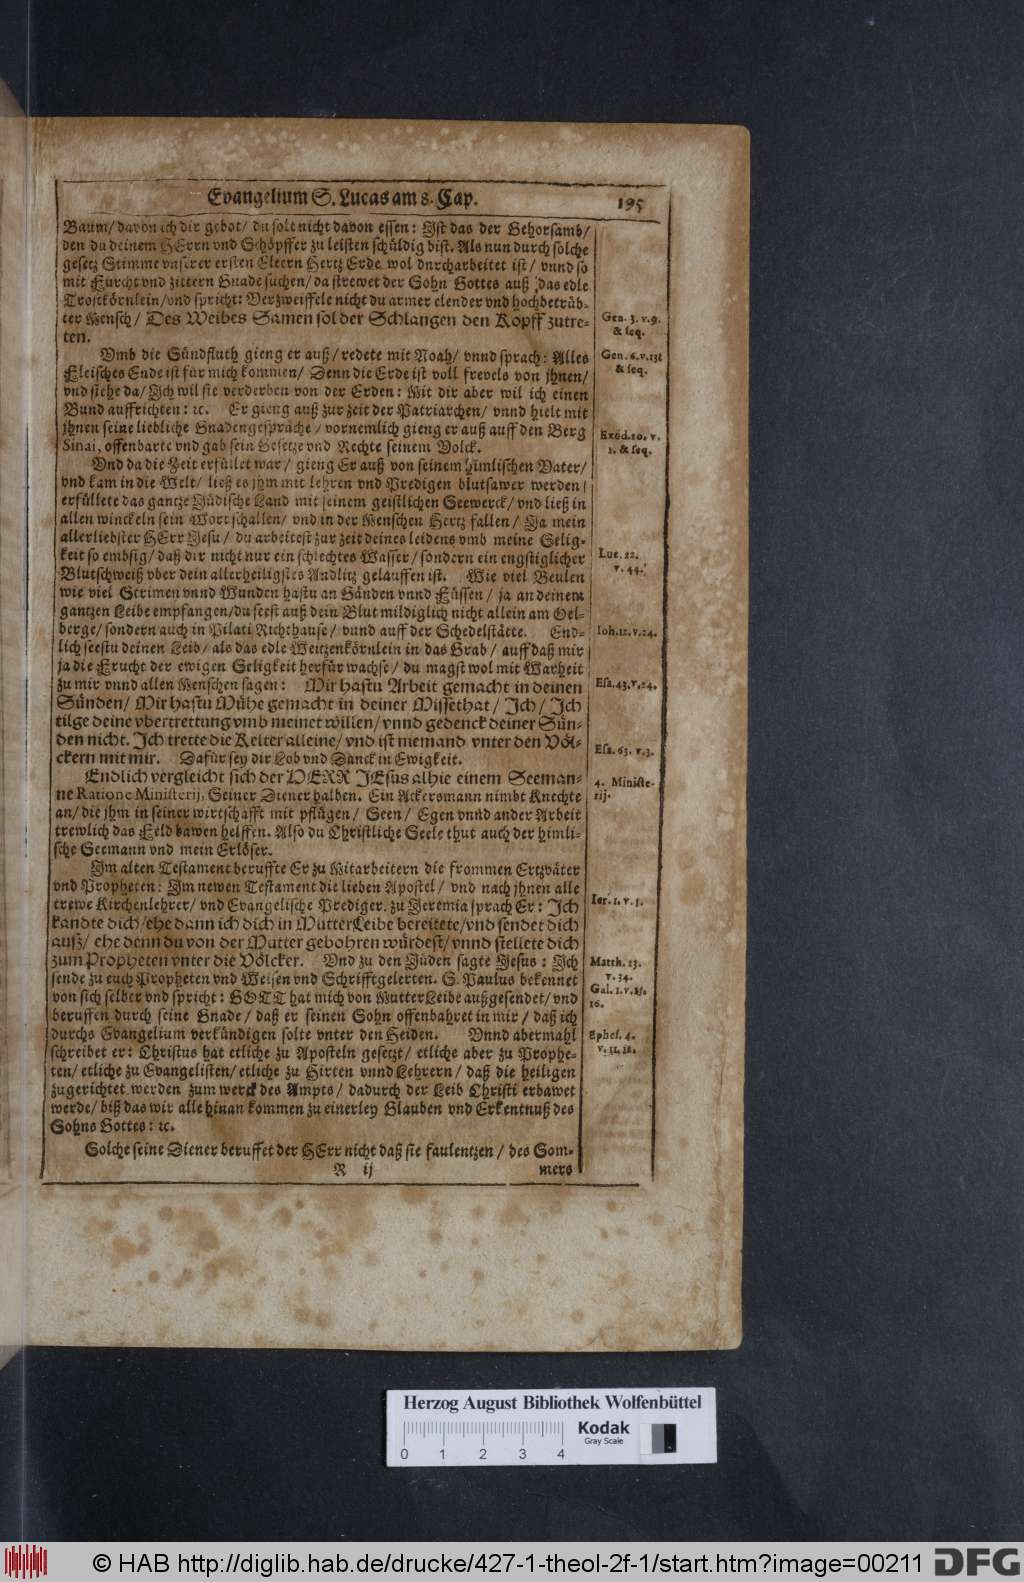 Evangelium S. Lucas am 8. Cap.
195
Baum/ davon ich dir gebot/ du solt nicht davon essen: Ist das der Gehorsamb/
den du deinem HErrn vnd Schöpffer zu leisten schüldig bist. Als nun durch solche
gesetz Stimme vnserer ersten Eltern Hertz Erde wol durcharbeitet ist/ vnnd so
mit Furcht vnd zittern Gnade suchen/ da strewet der Sohn Gottes auß das edle
Trostkörnlein/ vnd spricht: Verzweiffele nicht du armer elender vnd hochbetrüb-
ter Mensch/ Des Weibes Samen sol der Schlangen den Kopff zutre-
ten.
Gen. 3. v. 9.
& seq.
Vmb die Sündfluth gieng er auß/ redete mit Noah/ vnnd sprach: Alles
Fleisches Ende ist für mich kommen/ Denn die Erde ist voll frevels von jhnen/
vnd siehe da/ Ich wil sie verderben von der Erden: Mit dir aber wil ich einen
Bund auffrichten: ꝛc. Er gieng auß zur zeit der Patriarchen/ vnnd hielt mit
jhnen seine liebliche Gnadengespräche/ vornemlich gieng er auß auff den Berg
Sinai, offenbarte vnd gab sein Gesetze vnd Rechte seinem Volck.
Gen. 6. v. 13.
& seq.
Exod. 20. v.
1. & seq.
Vnd da die Zeit erfüllet war/ gieng Er auß von seinem himlischen Vater/
vnd kam in die Welt/ ließ es jhm mit lehren vnd Predigen blutsawer werden/
erfüllete das gantze Jüdische Land mit seinem geistlichen Seewerck/ vnd ließ in
allen winckeln sein Wort schallen/ vnd in der Menschen Hertz fallen/ Ja mein
allerliebster HErr Jesu/ du arbeitest zur zeit deines leidens vmb meine Selig-
keit so embsig/ daß dir nicht nur ein schlechtes Wasser/ sondern ein engstiglicher
Blutschweiß vber dein allerheiligstes Andlitz gelauffen ist. Wie viel Beulen
wie viel Strimen vnnd Wunden hastu an Händen vnnd Füssen/ ja an deinem
gantzen Leibe empfangen/ du seest auß dein Blut mildiglich nicht allein am Oel-
berge/ sondern auch in Pilati Richthause/ vnnd auff der Schedelstätte. End-
lich seestu deinen Leib/ als das edle Weitzenkörnlein in das Grab/ auff daß mir
ja die Frucht der ewigen Seligkeit herfür wachse/ du magst wol mit Warheit
zu mir vnnd allen Menschen sagen: Mir hastu Arbeit gemacht in deinen
Sünden/ Mir hastu Mühe gemacht in deiner Missethat/ Ich/ Ich
tilge deine vbertrettung vmb meinet willen/ vnnd gedenck deiner Sün-
den nicht. Ich trette die Kelter alleine/ vnd ist niemand vnter den Völ-
ckern mit mir. Dafür sey dir Lob vnd Danck in Ewigkeit.
Luc. 22.
v. 44.
Ioh. 12. v. 24.
Esa. 43. v. 24.
Esa. 63. v. 3.
Endlich vergleicht sich der HERR JEsus alhie einem Seeman-
ne Ratione Ministerij, Seiner Diener halben. Ein Ackersmann nimbt Knechte
an/ die jhm in seiner wirtschafft mit pflügen/ Seen/ Egen vnnd ander Arbeit
trewlich das Feld bawen helffen. Also du Christliche Seele thut auch der himli-
sche Seemann vnd mein Erlöser.
4. Ministe-
rij.
Im alten Testament beruffte Er zu Mitarbeitern die frommen Ertzväter
vnd Propheten: Im newen Testament die lieben Apostel/ vnd nach jhnen alle
trewe Kirchenlehrer/ vnd Evangelische Prediger. zu Jeremia sprach Er: Ich
kandte dich/ ehe dann ich dich in MutterLeibe bereitete/ vnd sendet dich
auß/ ehe denn du von der Mutter gebohren würdest/ vnnd stellete dich
zum Propheten vnter die Völcker. Vnd zu den Jüden sagte Jesus: Ich
sende zu euch Propheten vnd Weisen vnd Schrifftgelerten. S. Paulus bekennet
von sich selber vnd spricht: GOTT hat mich von MutterLeibe außgesendet/ vnd
beruffen durch seine Gnade/ daß er seinen Sohn offenbahret in mir/ daß ich
durchs Evangelium verkündigen solte vnter den Heiden. Vnnd abermahl
schreibet er: Christus hat etliche zu Aposteln gesetzt/ etliche aber zu Prophe-
ten/ etliche zu Evangelisten/ etliche zu Hirten vnnd Lehrern/ daß die heiligen
zugerichtet werden zum werck des Ampts/ dadurch der Leib Christi erbawet
werde/ biß das wir alle hinan kommen zu einerley Glauben vnd Erkentnuß des
Sohns Gottes: ꝛc.
Ier. 1. v. 5.
Matth. 23.
v. 34.
Gal. 1. v. 15.
16.
Ephes. 4.
v. 11. 12.
Solche seine Diener beruffet der HErr nicht daß sie faulentzen/ des Som-
R ij
mers
Herzog August Bibliothek Wolfenbüttel
Kodak
Gray Scale
0 1 2 3 4
© HAB http://diglib.hab.de/drucke/427-1-theol-2f-1/start.htm?image=00211
DFG